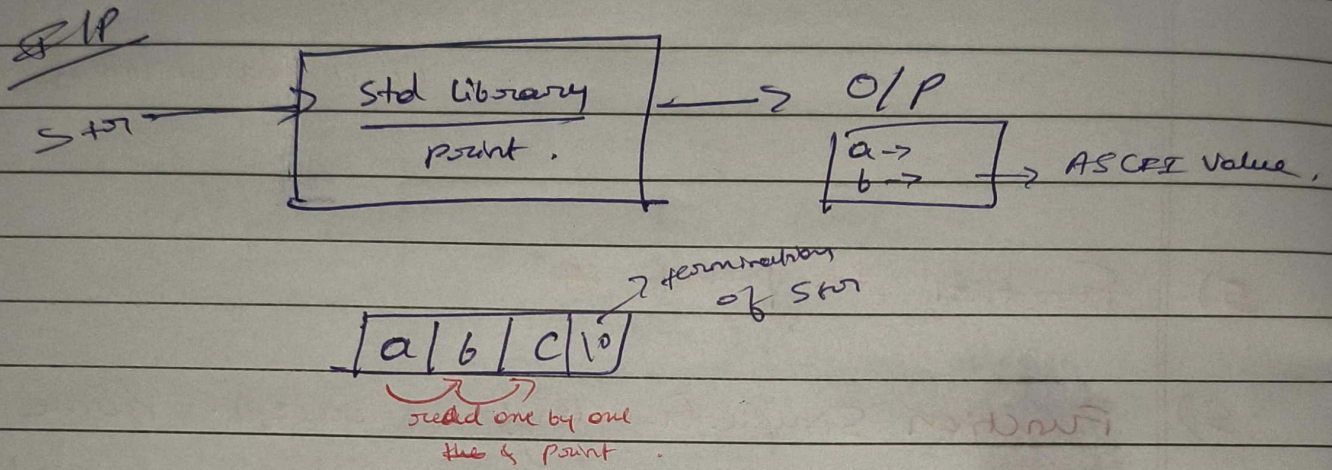 I/P
Str
Std Library
print.
O/P
a →
b →
→ ASCII Value.
termination
of Str
a b c \0
read one by one
& print.